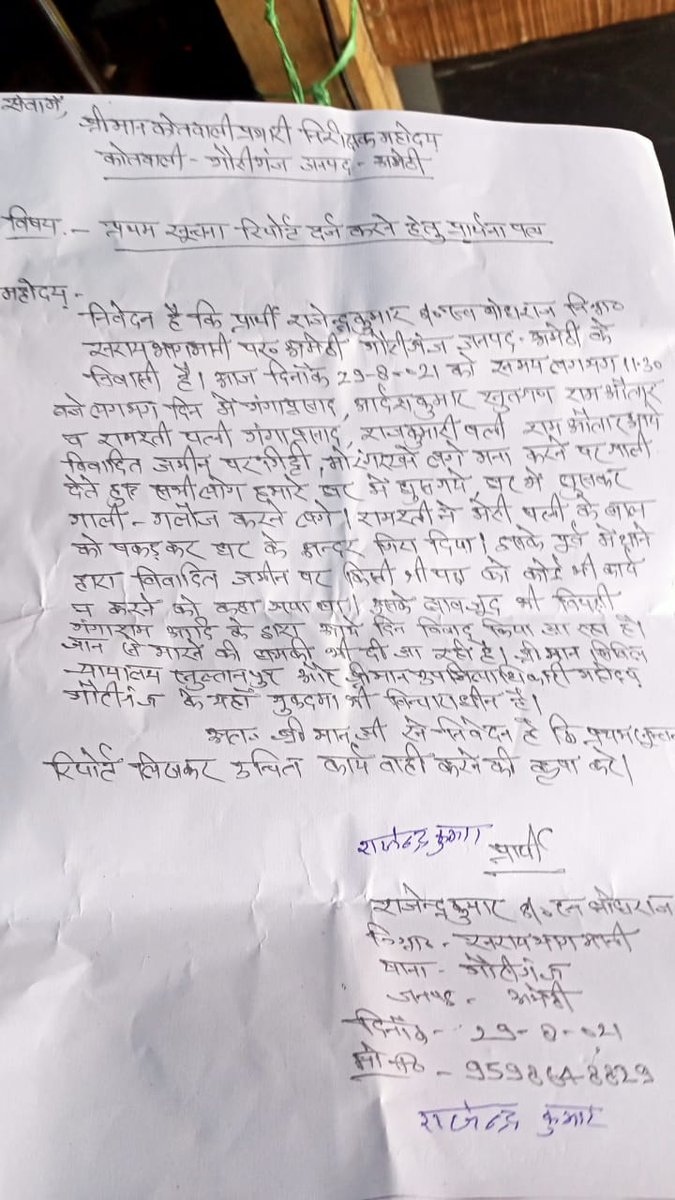 सेवामें,
श्रीमान कोतवाली प्रभारी निरीक्षक महोदय
कोतवाली - गौरीगंज जनपद - अमेठी
विषय.- प्रथम सूचना रिपोर्ट दर्ज करने हेतु प्रार्थना पत्र
महोदय,-
निवेदन है कि प्रार्थी राजेन्द्रकुमार बोधराज
पर० अमेठी गौरीगंज जनपद - अमेठी के
निवासी है। आज दिनाँक 29-8-021 को समय लगभग 11.30
बजे लगभग दिन में गंगाप्रसाद, आदेशकुमार सुतगण राम औतार
व रामरती पत्नी गंगाप्रसाद, राजकुमारी पत्नी राम औतार
विवादित जमीन पर गिट्टी, मोरंग रखने लगे मना करने पर गाली
देते हुए सभी लोग हमारे घर में घुस गये घर में घुसकर
गाली - गलौज करने लगे। रामरती ने मेरी पत्नी के बाल
को पकड़ कर घर के अन्दर गिरा दिया। इसके पूर्व में थाने
द्वारा विवादित जमीन पर किसी भी पक्ष को कोई भी कार्य
न करने को कहा गया था। उसके बावजूद भी विपक्षी
गंगाराम आदि के द्वारा आये दिन विवाद किया जा रहा है।
जान से मारने की धमकी भी दी जा रही है। श्रीमान सिविल
न्यायालय सुल्तानपुर और श्रीमान उपजिलाधिकारी महोदय
गौरीगंज के यहाँ मुकदमा भी विचाराधीन है।
अतः श्री मान जी से निवेदन है कि प्रथम सूचना
रिपोर्ट लिखकर उचित कार्यवाही करने की कृपा करें।
राजेन्द्र कुमार प्रार्थी
राजेन्द्रकुमार बोधराज
थाना - गौरीगंज
जनपद - अमेठी
दिनाँक - 29-8-021
मो०नं० - 9598648829
राजेन्द्र कुमार